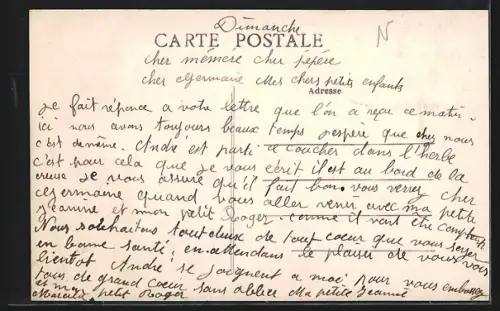 Dimanche
CARTE POSTALE
cher mémère cher pépère
cher Germaine Mes chers petits enfants
Adresse
je fait réponce a votre lettre que l'on a reçu ce matin
ici nous avons toujours beaux temps j'espère que cher nous
c'est de même. André est parti a coucher dans l'herbe
c'est pour cela que je vous écrit il est au bord de la
creuse je vous assure qu'il fait bon. vous verrez cher
Germaine quand vous aller venir avec ma petite
jeanine et mon petit Roger. comme il vont être
Nous souhaitons tout deux de tout coeur que vous soyez
en bonne santé; en attendant le plaisir de vous voir
bientot André se joignent a moi pour vous embrasser
tous de grand coeur sans oublier Ma petite Jeanine
et mon petit Roger